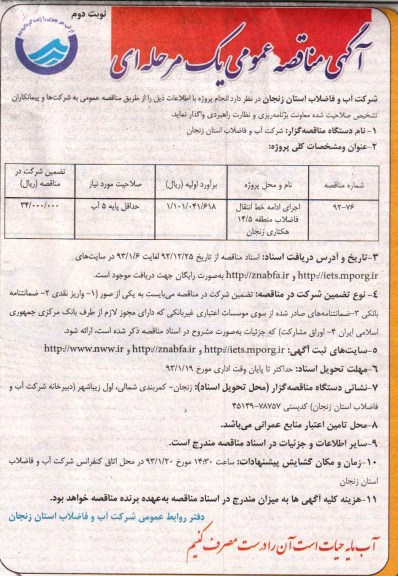 نوبت دوم
آگهی مناقصه عمومی یک مرحله‌ای
شرکت آب و فاضلاب استان زنجان در نظر دارد انجام پروژه با اطلاعات ذیل را از طریق مناقصه عمومی به شرکت‌ها و پیمانکاران
تشخیص صلاحیت شده معاونت برنامه‌ریزی و نظارت راهبردی واگذار نماید.
۱- نام دستگاه مناقصه‌گزار: شرکت آب و فاضلاب استان زنجان
۲-عنوان ومشخصات کلی پروژه:
شماره مناقصه
نام و محل پروژه
برآورد اولیه (ریال)
صلاحیت مورد نیاز
تضمین شرکت در
مناقصه (ریال)
۹۲-۷۶
اجرای ادامه خط انتقال
فاضلاب منطقه ۱۴/۵
هکتاری زنجان
۱/۱۰۱/۰۴۱/۶۱۸
حداقل پایه ۵ آب
۳۴/۰۰۰/۰۰۰
۳-تاریخ و آدرس دریافت اسناد: اسناد مناقصه از تاریخ ۹۲/۱۲/۲۵ لغایت ۹۳/۱/۶ در سایت‌های
http://iets.mporg.ir و http://znabfa.ir به‌صورت رایگان جهت دریافت موجود است.
۴- نوع تضمین شرکت در مناقصه: تضمین شرکت در مناقصه می‌بایست به یکی از صور (۱- واریز نقدی ۲- ضمانتنامه
بانکی ۳-ضمانتنامه‌های صادر شده از سوی موسسات اعتباری غیربانکی که دارای مجوز لازم از طرف بانک مرکزی جمهوری
اسلامی ایران ۴- اوراق مشارکت) که جزئیات به‌صورت مشروح در اسناد مناقصه ذکر شده است، ارائه شود.
۵-سایت‌های ثبت آگهی: http://iets.mporg.ir و http://znabfa.ir و http://www.nww.ir
۶-مهلت تحویل اسناد: حداکثر تا پایان وقت اداری مورخ ۹۳/۱/۱۹
۷-نشانی دستگاه مناقصه‌گزار (محل تحویل اسناد): زنجان- کمربندی شمالی، اول زیباشهر (دبیرخانه شرکت آب و
فاضلاب استان زنجان) کدپستی ۷۸۷۵۷-۴۵۱۴۹
۸-محل تامین اعتبار منابع عمرانی می‌باشد.
۹-سایر اطلاعات و جزئیات در اسناد مناقصه مندرج است.
۱۰-زمان و مکان گشایش پیشنهادات: ساعت ۱۴:۳۰ مورخ ۹۳/۱/۲۰ در محل اتاق کنفرانس شرکت آب و فاضلاب
استان زنجان
۱۱-هزینه کلیه آگهی ها به میزان مندرج در اسناد مناقصه به‌عهده برنده مناقصه خواهد بود.
دفتر روابط عمومی شرکت آب و فاضلاب استان زنجان
آب مایه حیات است آن را درست مصرف کنیم